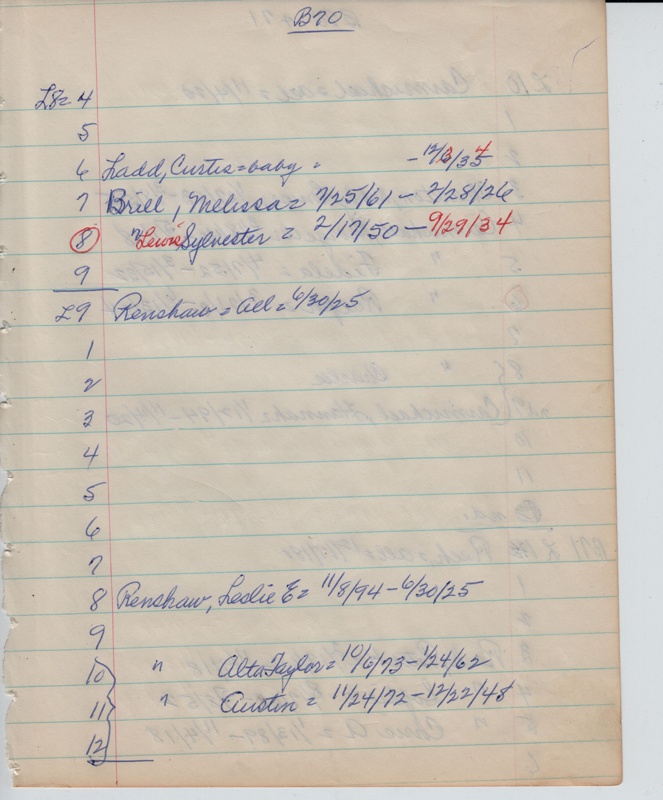 B70
L8= 4
5
6 Ladd, Curtis = baby = -12/3/34
7 Briel, Melissa = 7/25/61 - 2/28/26
8 " Lewis Sylvester = 2/17/50 - 9/29/34
9
L9 Renshaw = all = 6/30/25
1
2
3
4
5
6
7
8 Renshaw, Leslie E = 11/8/94 - 6/30/25
9
10 " Alta Taylor = 10/6/73 - 1/24/62
11 " Austin = 11/24/72 - 12/22/48
12